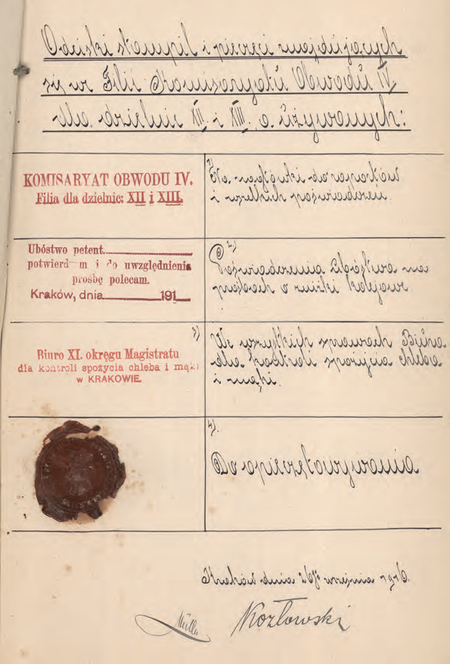 Odciski stampil i pieczęci znajdujących
się w Filii Komisaryatu Obwodu IV.
dla dzielnic XII i XIII. a używanych:
KOMISARYAT OBWODU IV.
Filia dla dzielnic: XII i XIII.
1) Na nagłówki do raportów
i wszelkich poświadczeń.
Ubóstwo petent
potwierdzam i do uwzględnienia
prośbę polecam.
Kraków, dnia 191
2)
Poświadczenia ubóstwa na
prośbach o zniżki kolejowe
3)
Biuro XI. okręgu Magistratu
dla kontroli spożycia chleba i mąki
w KRAKOWIE.
We wszystkich sprawach Biura
dla kontroli spożycia chleba
i mąki.
4).
Do opieczętowywania
Kraków dnia 26/ września 1916.
Kozłowski